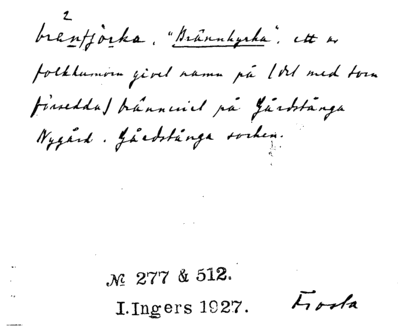 2
brænfjörka. "Brännkyrka". ett av
folkhumorn givet namn på (det med torn
försedda) bränneriet på Gårdstånga
Nygård. Gårdstånga socken.
№ 277 & 512.
I. Ingers 1927. Frosta